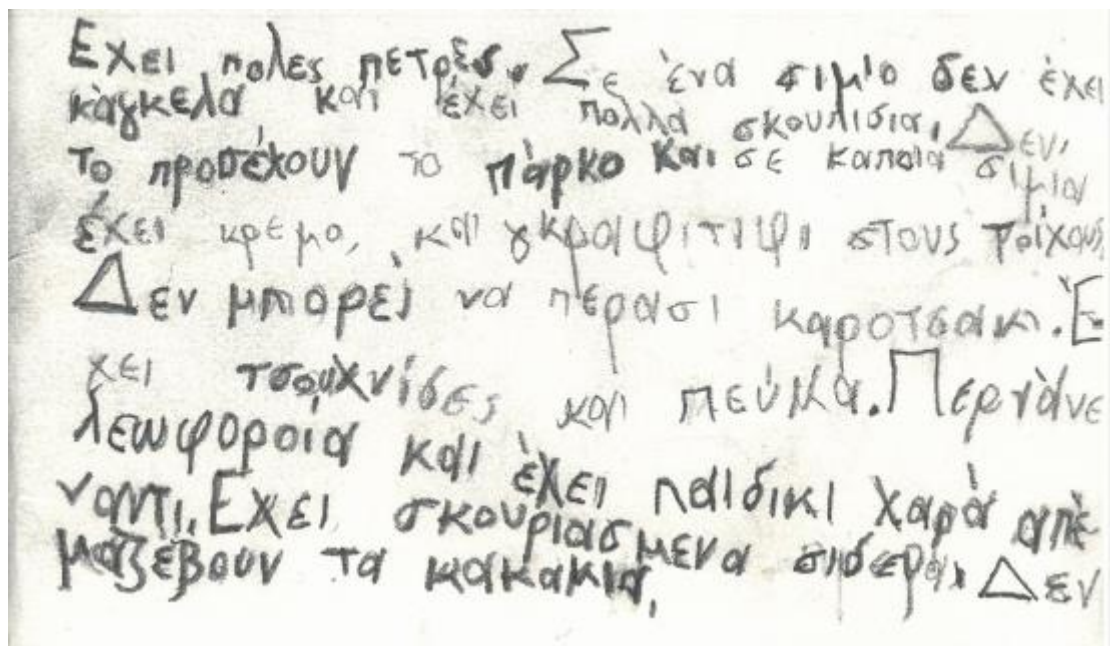 Εχει πολες πετρες. Σε ένα σιμίο δεν έχει
κάγκελα και έχει πολλά σκουπίδια, Δεν,
το προσέχουν το πάρκο και σε καποιά σιμια
έχει κρεμο, και γκραφιτιφι στους τοίχους,
Δεν μπορεί να πέρασι καροτσακι. Έ
χει τσουχνίδες και πεύκα. Περνάνε
λεωφοροία και έχει παιδικι χαρά απέ
ναντι. Εχει σκουριασμενα σιδερά, Δεν
μαζεβουν τα κακακια,